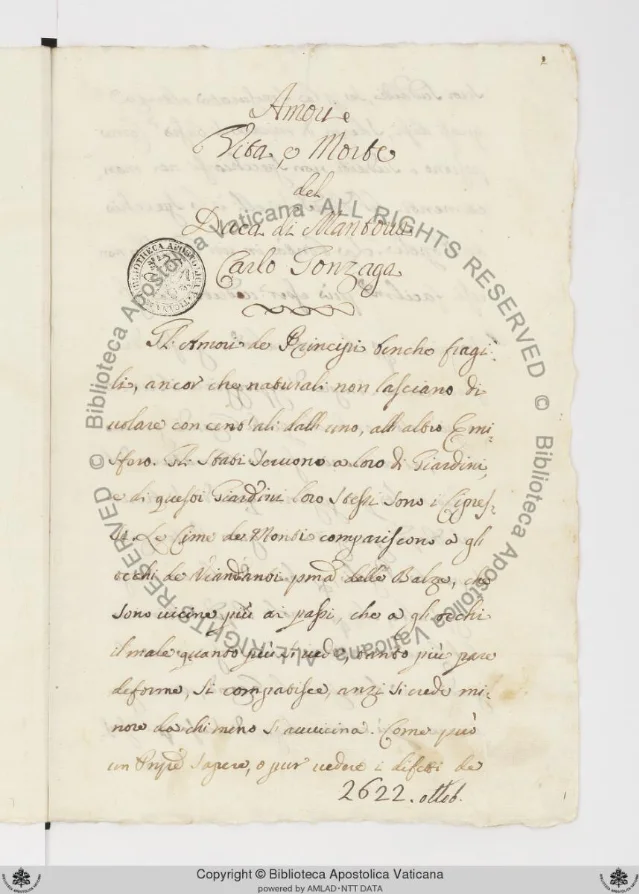 1
Amori e
Vita, e Morte
del
Duca di Mantoua
Carlo Gonzaga
Gl'Amori de Principi benche fragi-
li, ancor che naturali non lasciano di
uolare con cent'ali dall'uno, all'altro Emi-
sfero. Gli Stati seruono a loro di Giardini,
e di questi Giardini loro stessi sono i Cipres-
si. Le Cime de Monti compariscono a gli
occhi de Viandanti pma delle Balze, che
sono uicine più ai passi, che a gl'occhi
il male quanto più si uede, tanto più pare
deforme, si compatisce, anzi si crede mi-
nore da chi meno s'auuicina. Come può
un Pnpe sapere, o pur uedere i difetti de
2622. ottob.
© Biblioteca Apostolica Vaticana ALL RIGHTS RESERVED
© Biblioteca Apostolica Vaticana ALL RIGHTS RESERVED
BIBLIOTHECA APOSTOLICA VATICANA
Copyright © Biblioteca Apostolica Vaticana
powered by AMLAD・NTT DATA